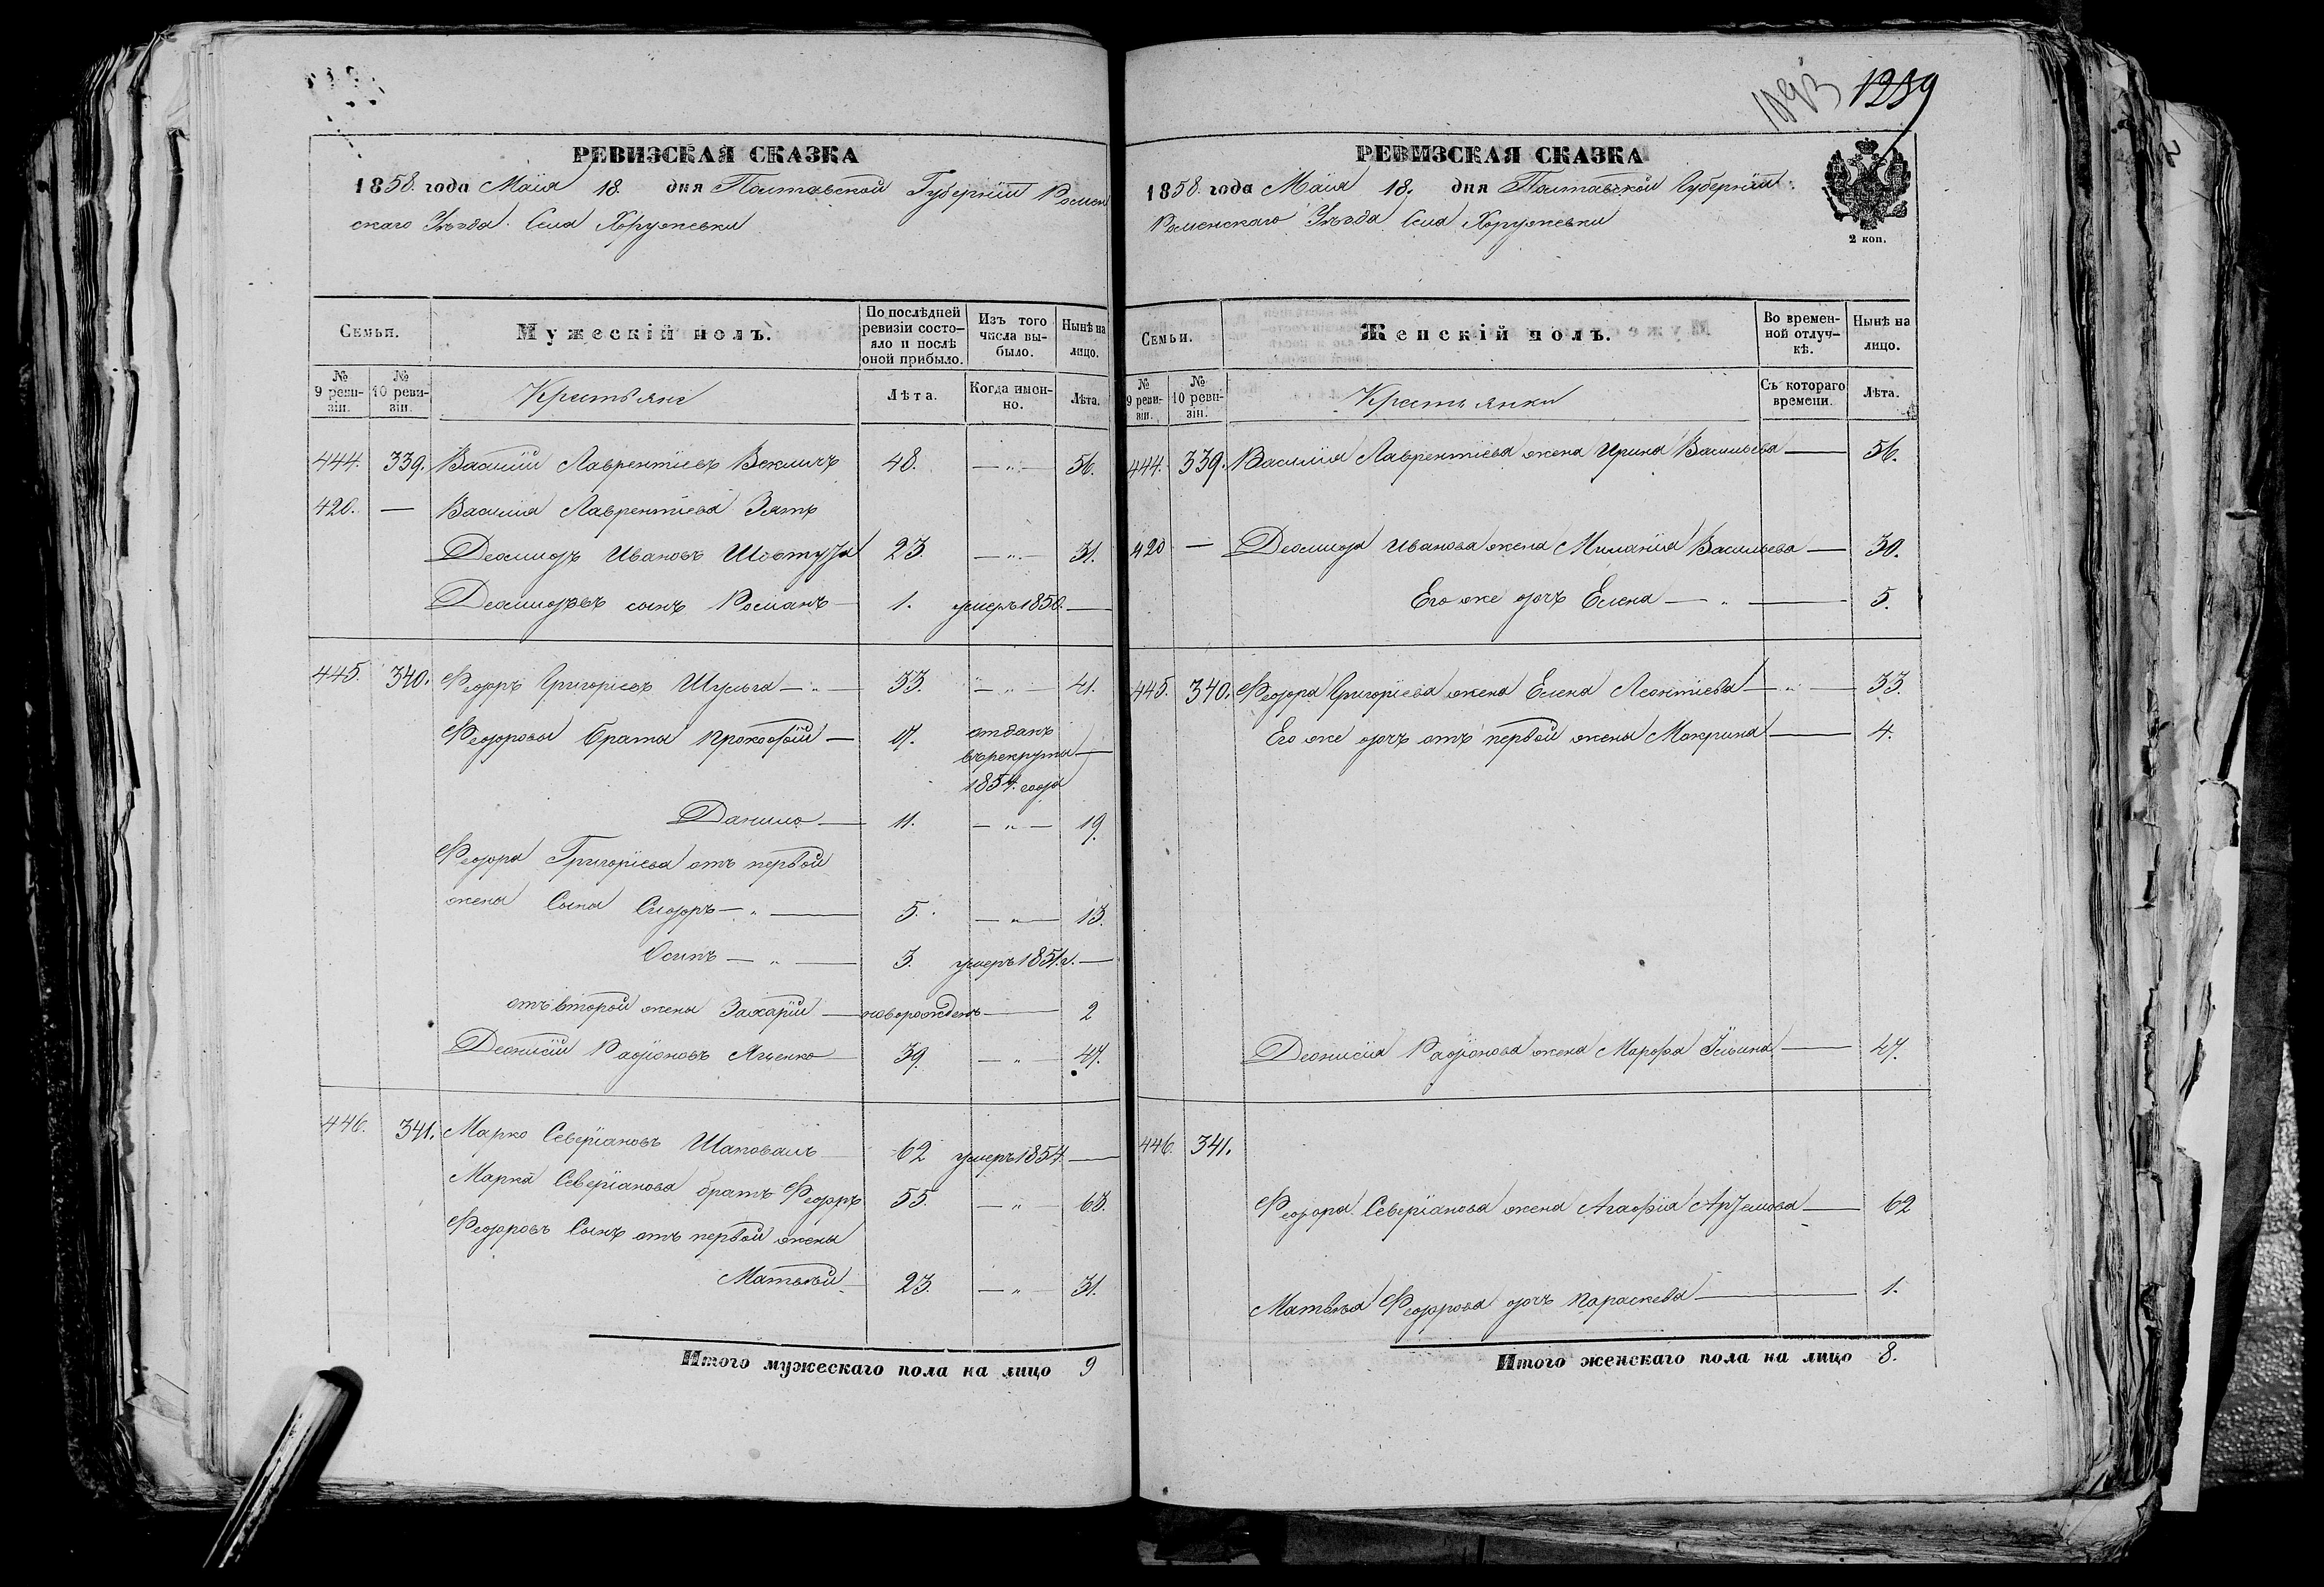 1893 1289
РЕВИЗСКАЯ СКАЗКА
1858. года Маія 18. дня Полтавской Губерніи Ромен
скаго Уѣзда. Села Хоружевки
Семьи.
Мужескій полъ.
По послѣдней ревизіи состояло и послѣ оной прибыло.
Изъ того числа выбыло.
Нынѣ на лицо.
№ 9 ревизіи.
№ 10 ревизіи.
Крестьяне
Лѣта.
Когда именно.
Лѣта.
444. 339. Василій Лаврентіевъ Векличъ 48. — " — 56.
420. — Василія Лаврентіева Зять
Деомидъ Ивановъ Шовтура 23. — " — 31.
Деомидовъ сынъ Романъ — 1. умеръ 1850. —
445. 340. Федоръ Григоріевъ Шульга — " — 33. — " — 41.
Федоровы братья Прокофій — 17. отданъ
въ рекруты —
1854. года
Данило — 11. — " — 19.
Федора Григоріева отъ первой
жены Сыны Сидоръ — " — 5. — " — 13.
Осипъ — " — 3. умеръ 1851. г. —
отъ второй жены Захарій — новорожденъ — 2
Деонисій Радіоновъ Яценко — 39. — " — 47.
446. 341. Марко Северіановъ Шаповалъ 62 умеръ 1854 —
Марка Северіанова братъ Федоръ 55. — " — 63.
Федоровъ Сынъ отъ первой жены
Матвѣй 23. — " — 31.
Итого мужескаго пола на лицо 9
РЕВИЗСКАЯ СКАЗКА
1858. года Маія 18. дня Полтавской Губерніи.
Роменскаго Уѣзда Села Хоружевки
2 коп.
Семьи.
Женскій полъ.
Во временной отлучкѣ.
Нынѣ на лицо.
№ 9 ревизіи.
№ 10 ревизіи.
Крестьянки
Съ котораго времени.
Лѣта.
444. 339. Василія Лаврентіева жена Ирина Васильева — 56.
420 — Деомида Иванова жена Миланія Васильева — 30.
Его же дочь Елена — " — 5.
445. 340. Федора Григоріева жена Елена Леонтіева — " — 33.
Его же дочь отъ первой жены Макрина — 4.
Деонисія Радіонова жена Марфа Ильина — 47.
446. 341.
Федора Северіанова жена Агафія Артемова — 62
Матвѣя Федорова дочь Параскева — 1.
Итого женскаго пола на лицо 8.